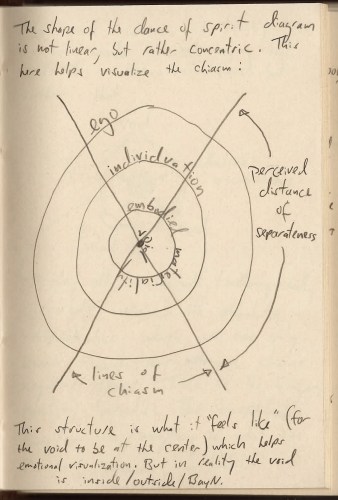 The shape of the dance of spirit diagram
is not linear, but rather concentric. This
here helps visualize the chiasm:
ego
individuation
embodied materiality
void
perceived
distance
of
separateness
lines of
chiasm
This structure is what it "feels like" (for
the void to be at the center) which helps
emotional visualization. But in reality the void
is inside/outside/